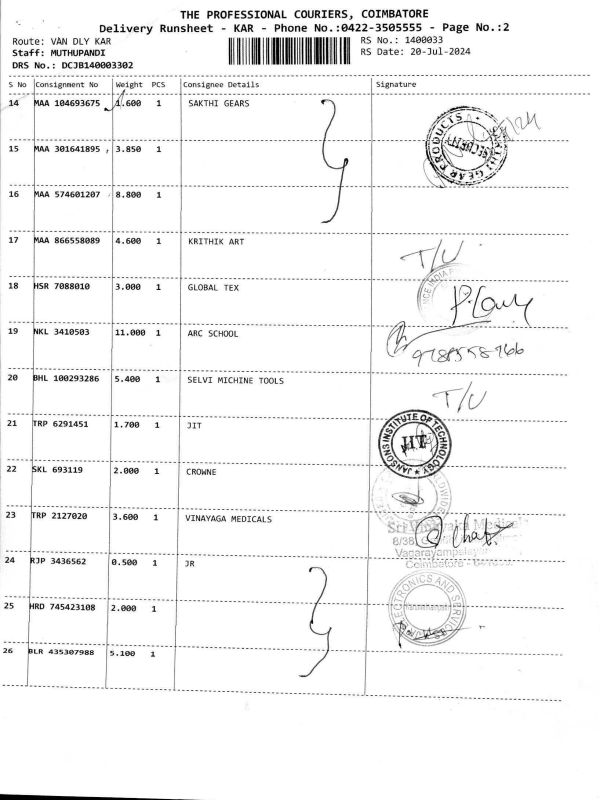 THE PROFESSIONAL COURIERS, COIMBATORE
Delivery Runsheet - KAR - Phone No.:0422-3505555 - Page No.:2
Route: VAN DLY KAR RS No.: 1400033
Staff: MUTHUPANDI RS Date: 20-Jul-2024
DRS No.: DCJB140003302
S No Consignment No Weight PCS Consignee Details Signature
14 MAA 104693675 1.600 1 SAKTHI GEARS
SAKTHI GEAR PRODUCTS
SECURITY
15 MAA 301641895 3.850 1
16 MAA 574601207 8.800 1
17 MAA 866558089 4.600 1 KRITHIK ART
T/U
18 HSR 7088010 3.000 1 GLOBAL TEX
19 NKL 3410503 11.000 1 ARC SCHOOL
20 BHL 100293286 5.400 1 SELVI MICHINE TOOLS
T/U
21 TRP 6291451 1.700 1 JIT
JANSONS INSTITUTE OF TECHNOLOGY
JIT
22 SKL 693119 2.000 1 CROWNE
23 TRP 2127020 3.600 1 VINAYAGA MEDICALS
Sri Vinayaka Medical
8/38
Vagarayampalayam
Coimbatore
24 RJP 3436562 0.500 1 JR
ELECTRONICS AND SERVICE
25 HRD 745423108 2.000 1
26 BLR 435307988 5.100 1